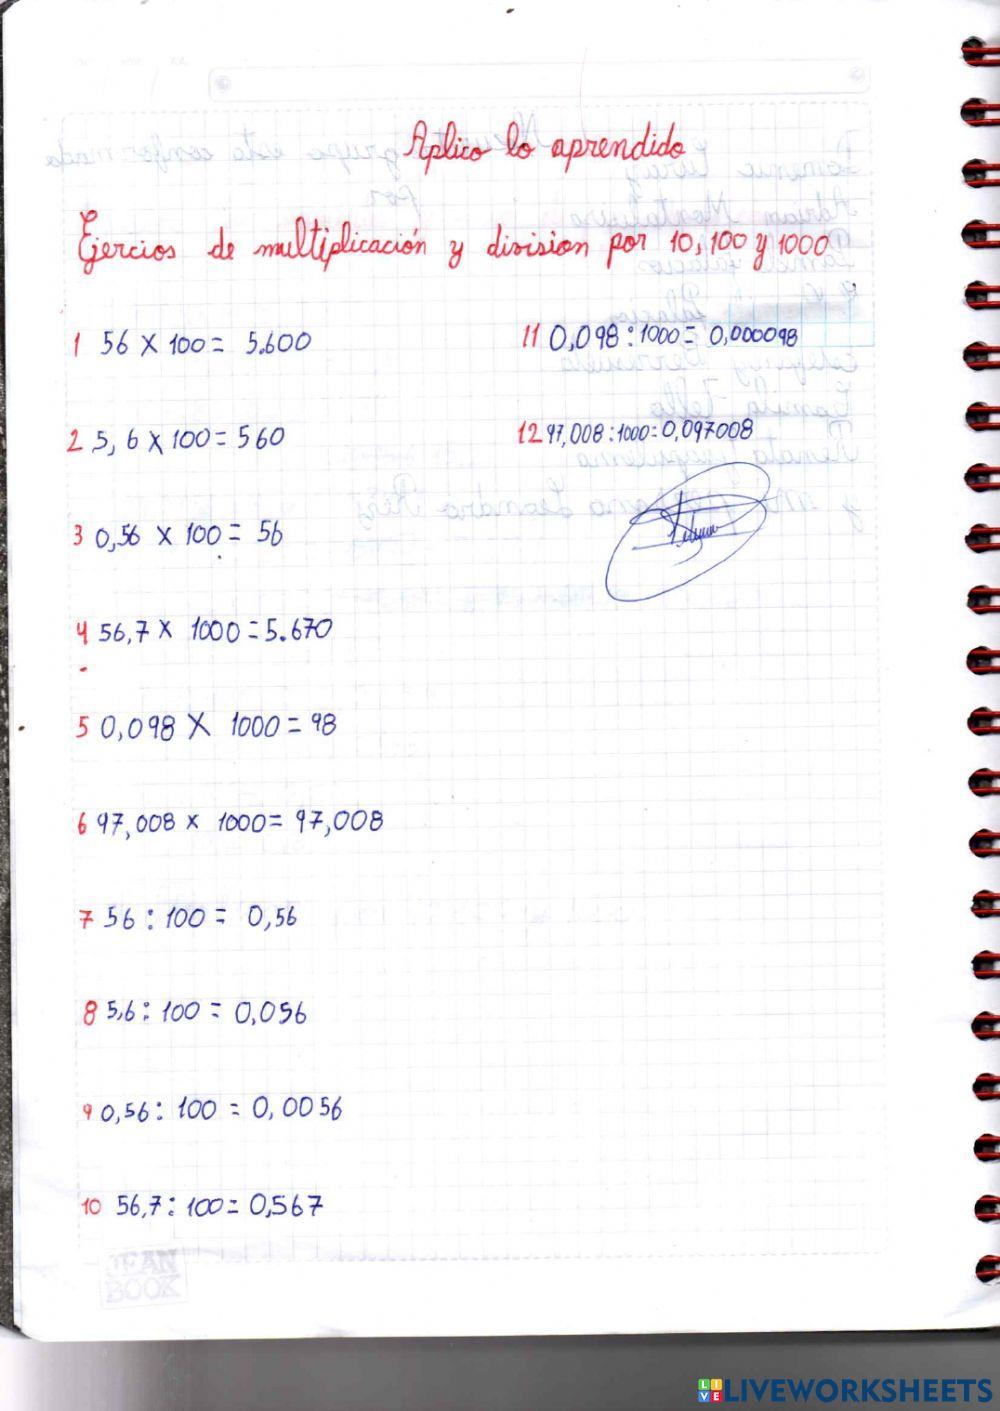 Aplico lo aprendido
Ejercios de multiplicación y division por 10, 100 y 1000
1 56 X 100 = 5.600
2 5,6 X 100 = 560
3 0,56 X 100 = 56
4 56,7 X 1000 = 5.670
5 0,098 X 1000 = 98
6 97,008 X 1000 = 97,008
7 56 : 100 = 0,56
8 5,6 : 100 = 0,056
9 0,56 : 100 = 0,0056
10 56,7 : 100 = 0,567
11 0,098 : 1000 = 0,000098
12 97,008 : 1000 = 0,097008
JEAN BOOK
LIVEWORKSHEETS